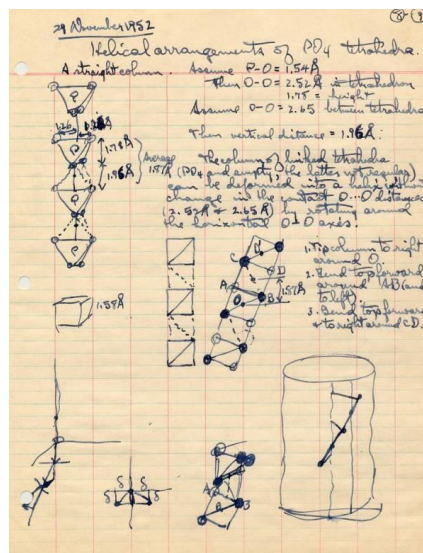 29 November 1952
Helical arrangements of PO4 tetrahedra.
A straight column. Assume P-O = 1.54Å
Then O-O = 2.52Å in tetrahedron
1.78 = height
Assume O-O = 2.65 between tetrahedra
Then vertical distance = 1.96Å.
The column of linked tetrahedra
(PO4 and empty, the latter not regular)
can be deformed into a helix without
change in the contact O...O distances
(2.52Å & 2.65Å) by rotating around
the horizontal O-O axes.
P
1.26
1.78Å
P
1.96Å
Average
1.87Å
P
P
1. Tip column to right
around O.
2. Bend top forward
around AB (and
to left).
3. Bend top forward
& to right around CD.
C
D
A
O
B
1.87Å
1.59Å
δ δ
δ δ
A
B